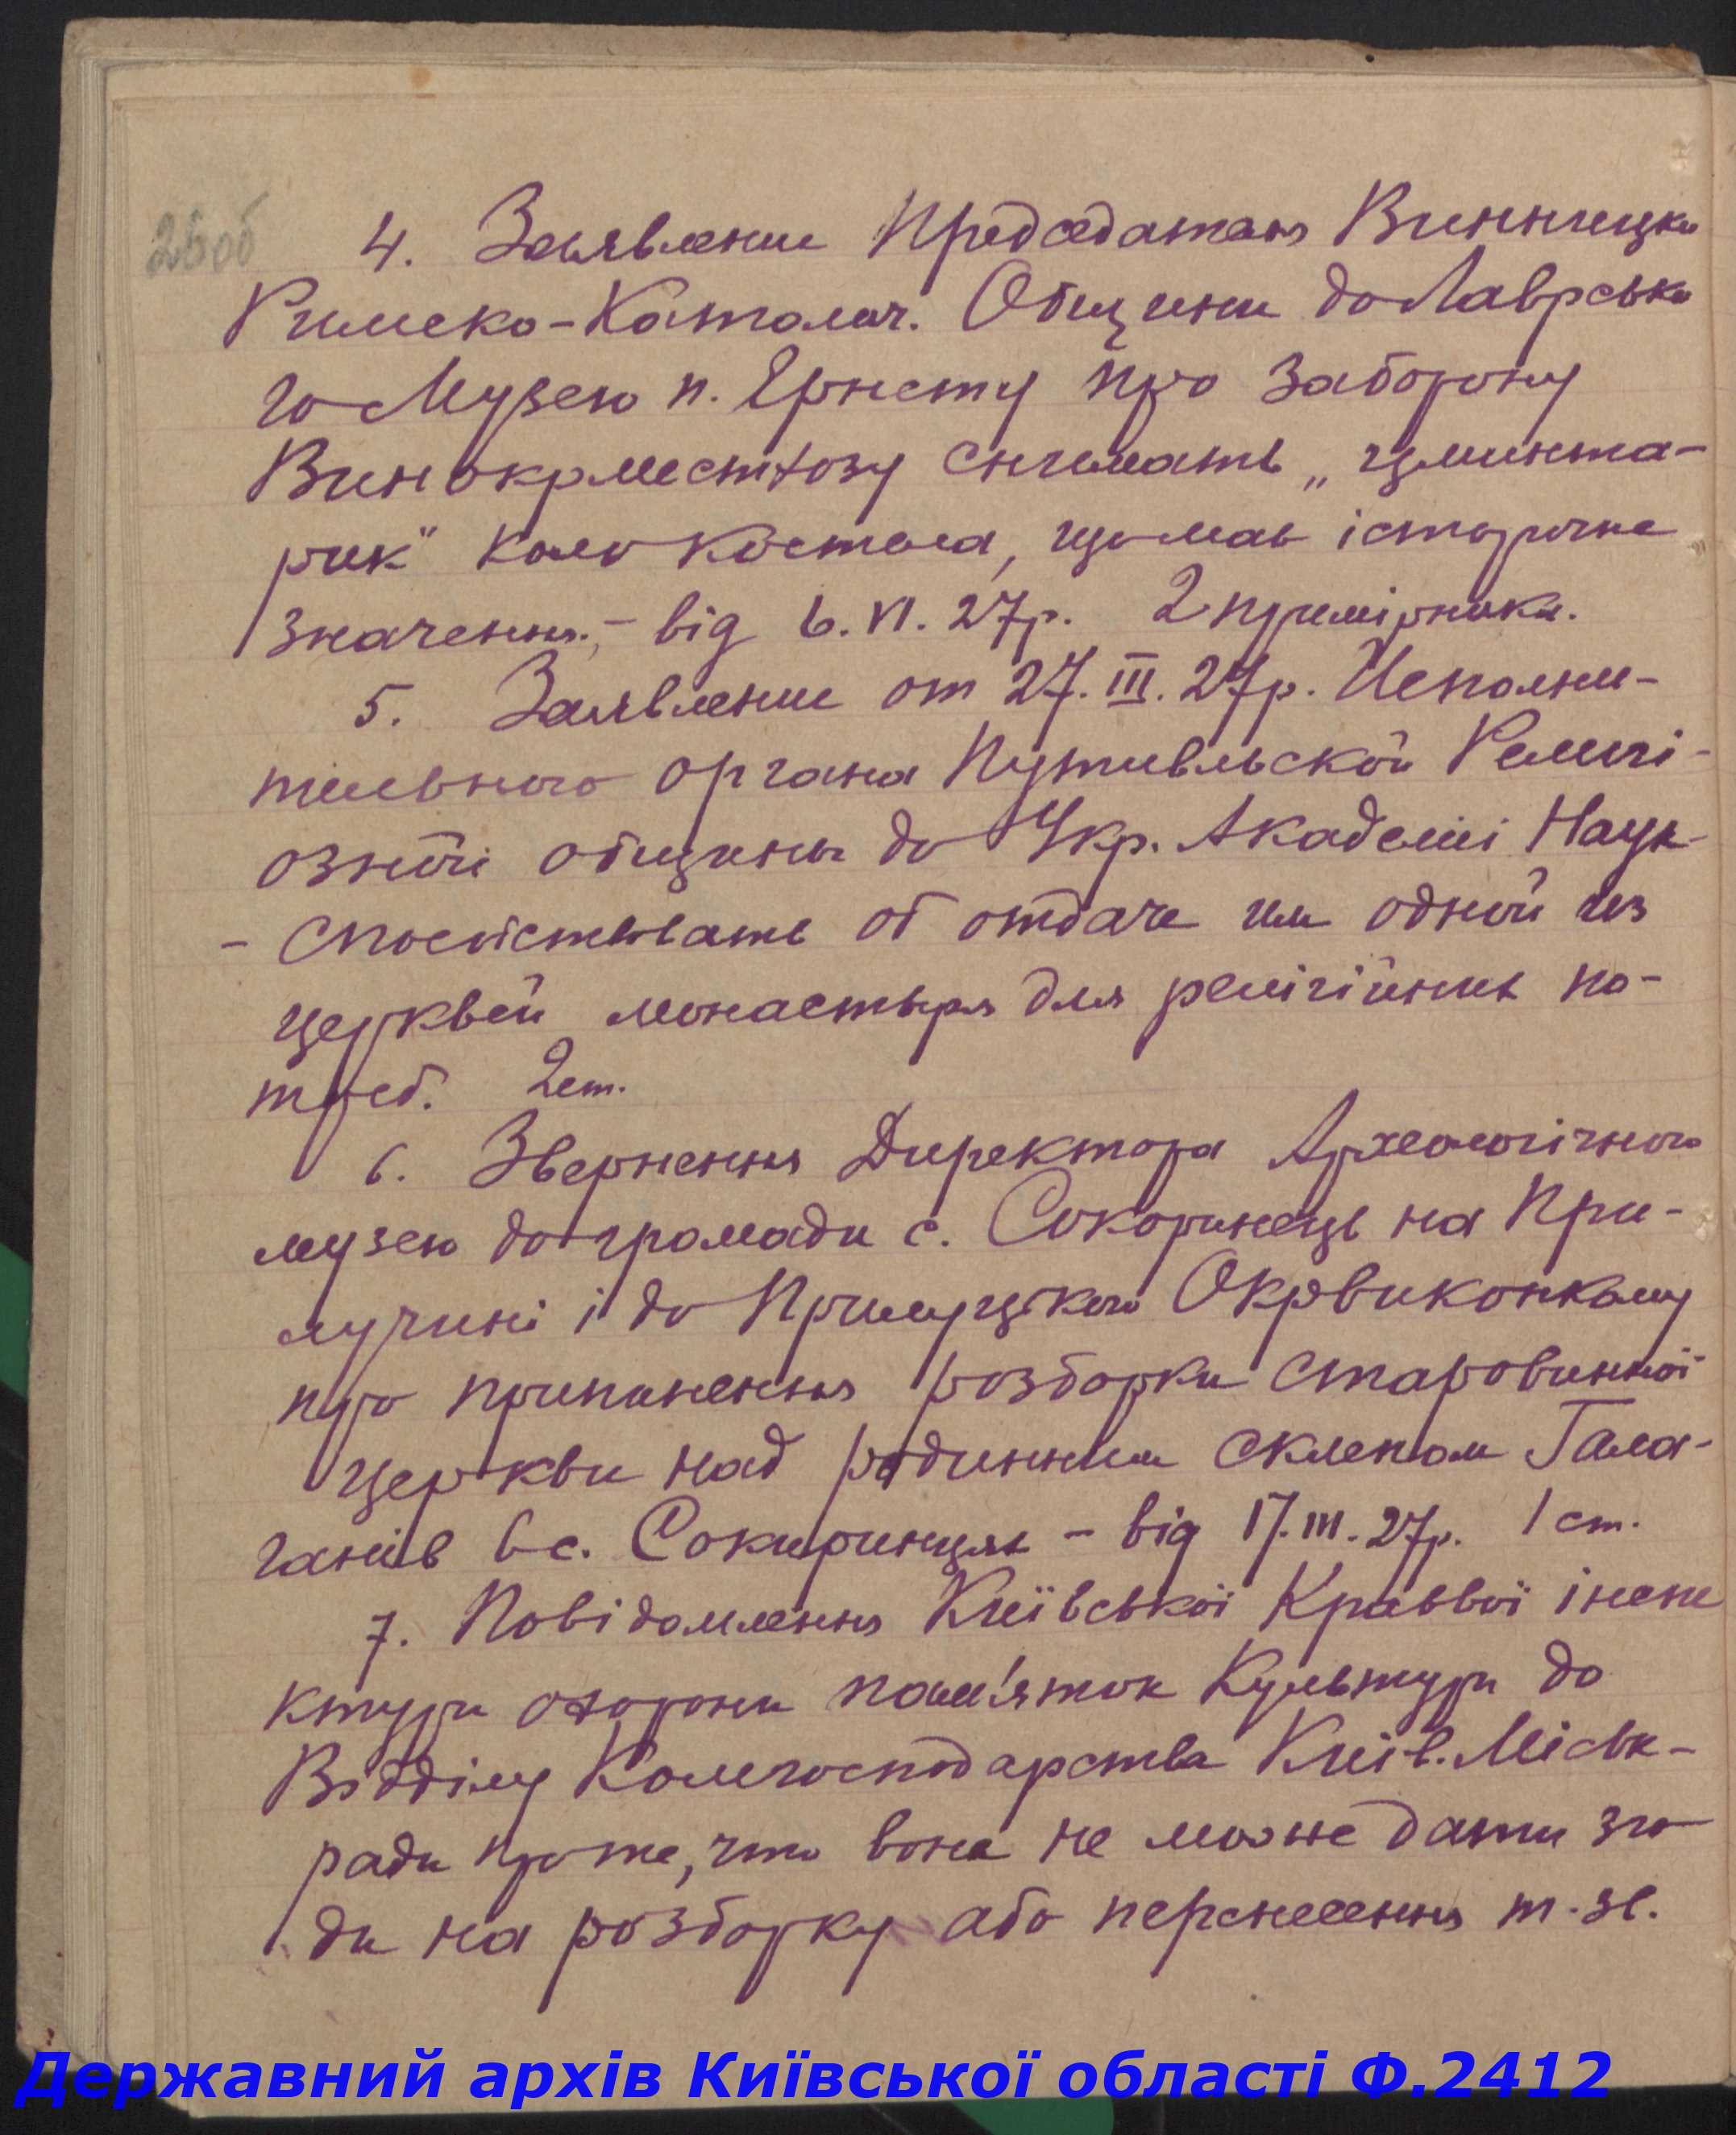 26об
4. Заявление Председателя Винницко
Римско-Католич. Общины до Лаврсько
го Музею п. Ернсту про заборону
Винокрместгозу снимать „цминта-
рик" коло костела, що мав історичне
значення, – від 6.VI.27р. 2 примірника.
5. Заявление от 27.III.27р. Исполни-
тельного органа Путивльской Релігі-
озной общины до Укр. Академії Наук
– способствовать об отдаче им одной из
церквей монастыря для релігійних по-
треб. 2 ст.
6. Звернення Директора Археологічного
музею до громади с. Сокоринець на При-
лучині і до Прилуцького Окрвиконкому
про припинення розборки старовинної
церкви над родинним склепом Гала-
ганів в с. Сокиринцях – від 17.III.27р. 1 ст.
7. Повідомлення Київської Краєвої інспе
ктури охорони пам'яток Культури до
Відділу Комгосподарства Київ. Міськ-
ради про те, что вона не може дати зго
ди на розборку або перенесення т. зв.
Державний архів Київської області Ф.2412